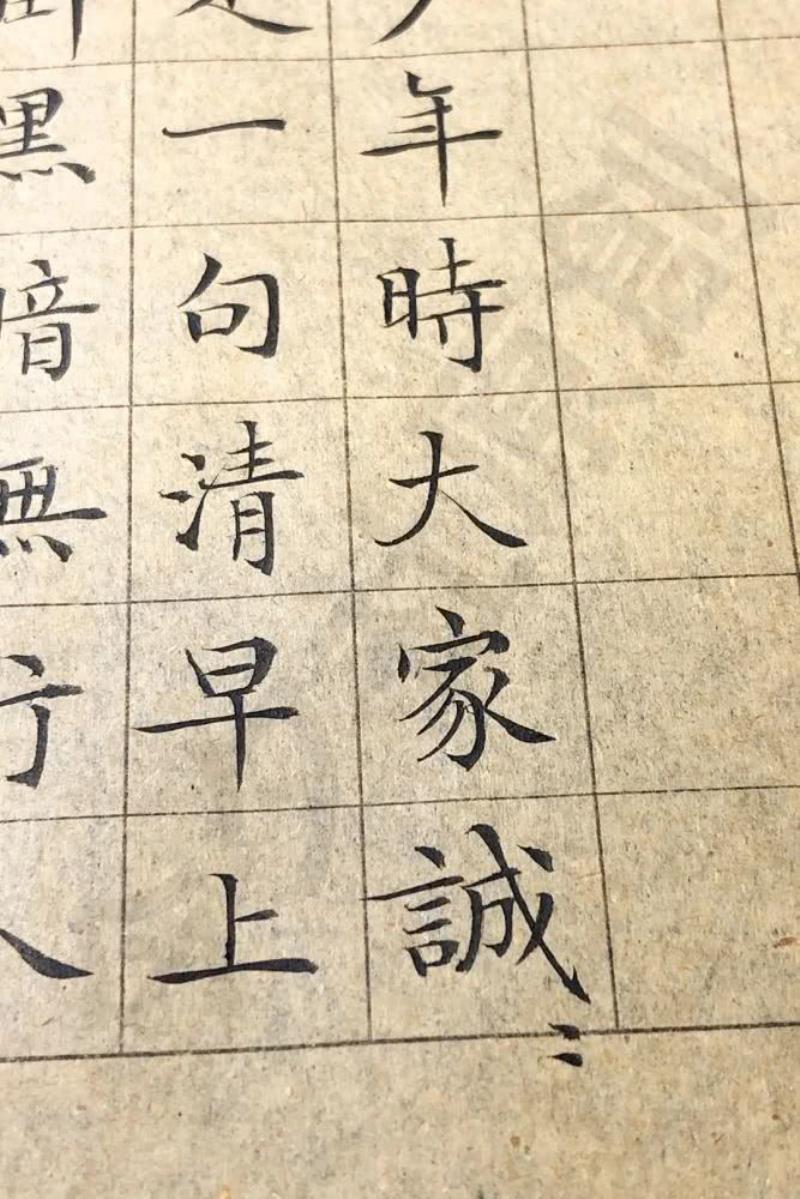 年時大家誠〻
一句清早上
黑暗無行人